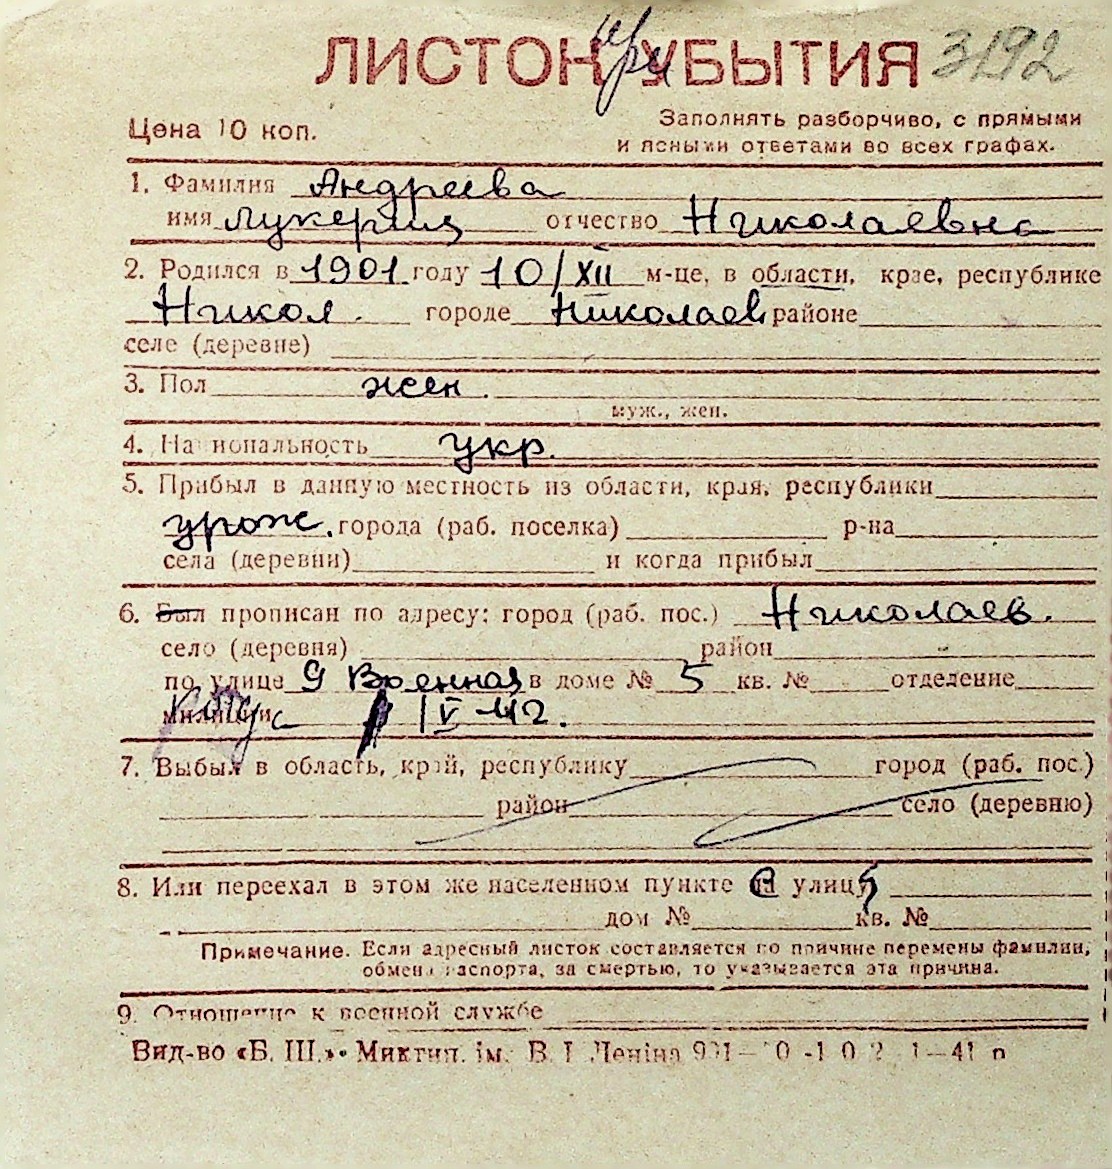 ЛИСТОК при УБЫТИЯ 3192
Цена 10 коп.
Заполнять разборчиво, с прямыми
и ясными ответами во всех графах.
1. Фамилия Андреева
имя Лукерия отчество Николаевна
2. Родился в 1901 году 10/XII м-це, в области, крае, республике
Никол. городе Николаев районе
селе (деревне)
3. Пол жен.
муж., жен.
4. Национальность укр.
5. Прибыл в данную местность из области, края, республики
урож. города (раб. поселка) р-на
села (деревни) и когда прибыл
6. Был прописан по адресу: город (раб. пос.) Николаев.
село (деревня) район
по улице 9 Военная в доме № 5 кв. № отделение
милиции IV 42.
7. Выбыл в область, край, республику город (раб. пос.)
район село (деревню)
8. Или переехал в этом же населенном пункте с улицы
дом № кв. №
Примечание. Если адресный листок составляется по причине перемены фамилии,
обмена паспорта, за смертью, то указывается эта причина.
9. Отношение к военной службе
Вид-во «Б. Ш.». Миктип. ім. В. І. Леніна